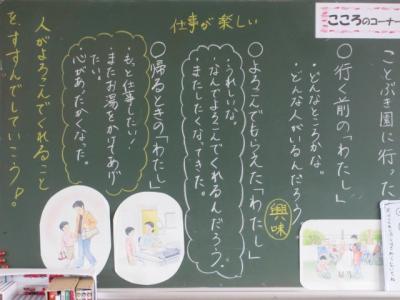 こころのコーナー
仕事が楽しい
ことぶき園に行った
○行く前の「わたし」
・どんなところかな。
・どんな人がいるんだろう。
興味
○よろこんでもらえた「わたし」
・うれしいな。
・なんでよろこんでくれるんだろう。
・またしたくなってきた。
○帰るときの「わたし」
・もっと仕事したい!
・またお湯をかけてあげたい。
・心があたたかくなった。
人がよろこんでくれること
を、すすんでしていこう!